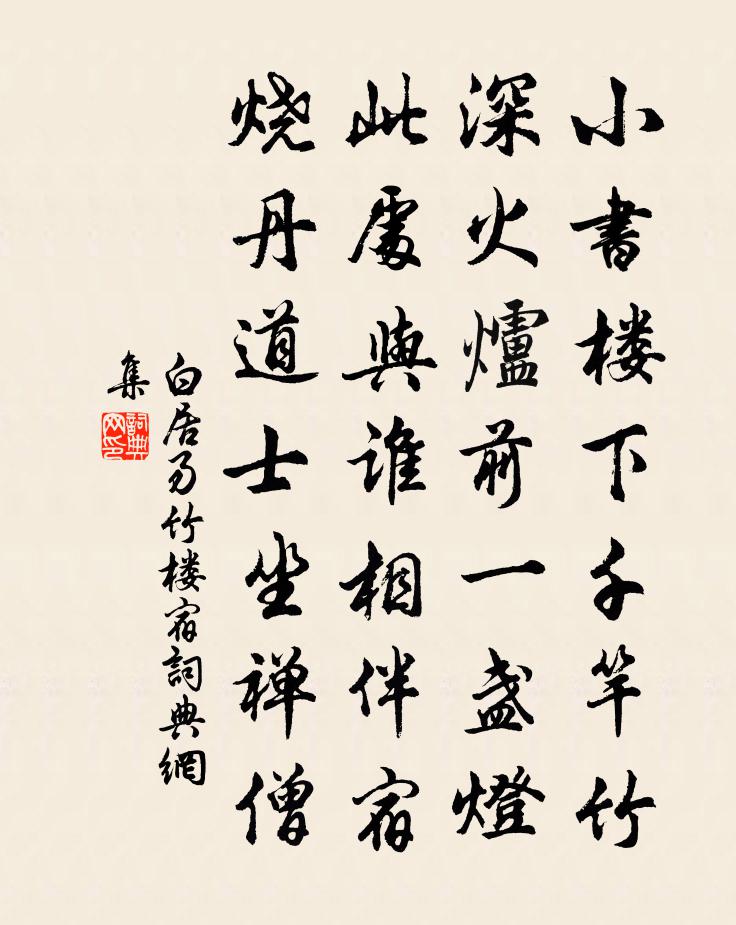 小書楼下千竿竹
深火爐前一盏燈
此處與谁相伴宿
烧丹道士坐禅僧
白居易竹楼宿詞典網
集
詞典
网印